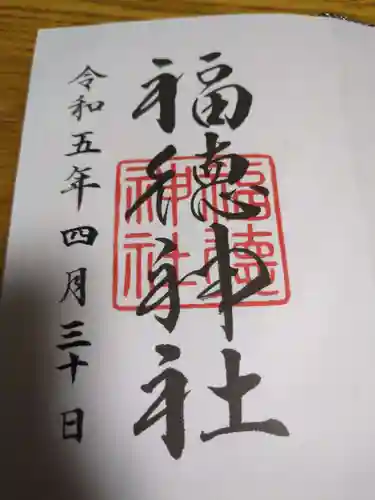 福德神社
福德
神社
令和五年四月三十日